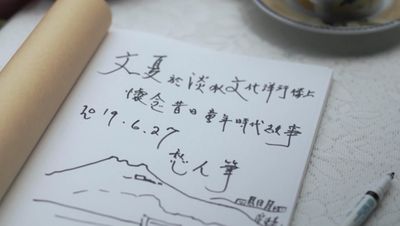 文夏於淡水文化洋行樓上
懷念昔日童年時代故事
2019.6.27
愁人筆